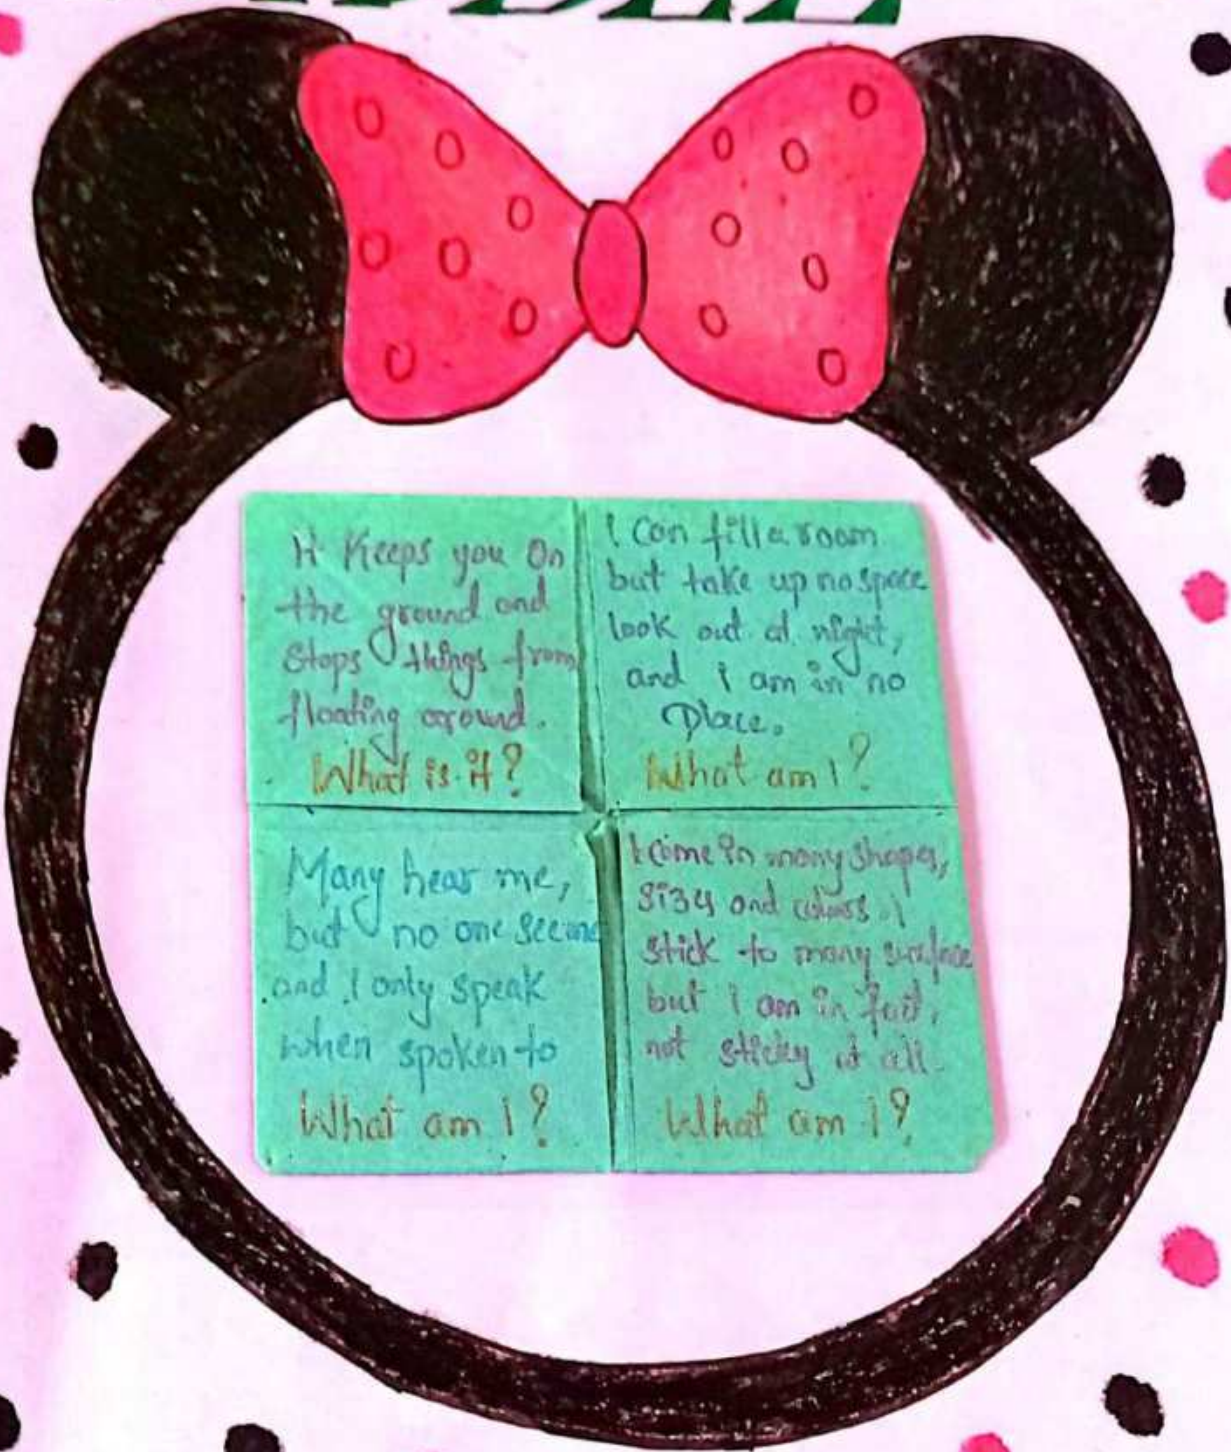 It Keeps you On
the ground and
Stops things from
floating around.
What is it?
I can fill a room
but take up no space
look out at night,
and i am in no
Place.
What am I?
Many hear me,
but no one see me
and I only speak
when spoken to
What am I?
I come in many shapes,
sizes and colours. I
stick to many surface
but i am in fact,
not sticky at all.
What am I?